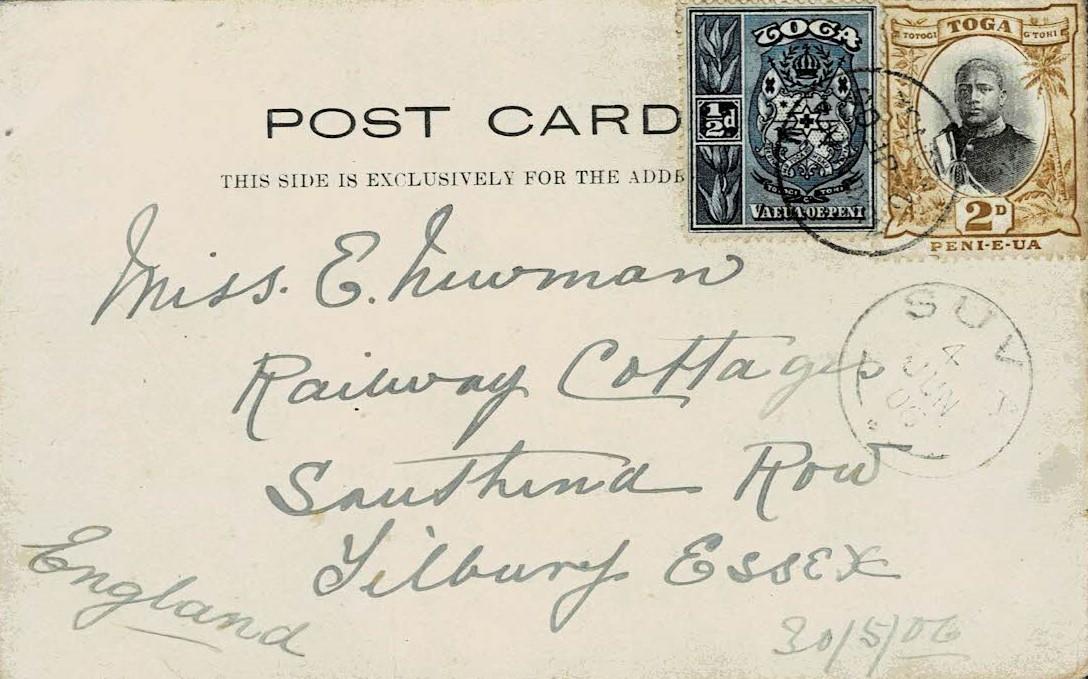 POST CARD
THIS SIDE IS EXCLUSIVELY FOR THE ADDR
TOGA
½d
TOTOGI
TONI
VAEUA·OE·PENI
TOTOGI TOGA G TOHI
2D
PENI-E-UA
Miss. E. Newman
Railway Cottages
Southend Row
Tilbury Essex
England
SUVA
4
JUN
06
30/5/06